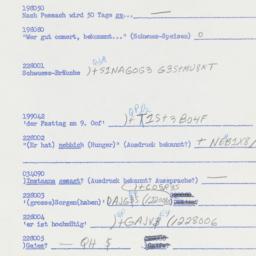 198050
Nach Pessach wird 50 Tage ge... —
198080
"Wer gut omert, bekommt..." (Schwuos-Speisen) O
228001
Schwuoss-Bräuche )+S1NAGOG3 G3S+MU8KT
199048
'der Fasttag am 9. Oof' )+T1S+3BO4F
228002
"(Er hat) nebbich (Hunger)" (Ausdruck bekannt?) + NEB1X8/
034090
(Ausdruck bekannt? Aussprache?) —
228003
'(grosse)Sorgen(haben)' DAJG$ (/22800
228004
'er ist hochmütig' )+GAJV$ /228006
228005
— QH $